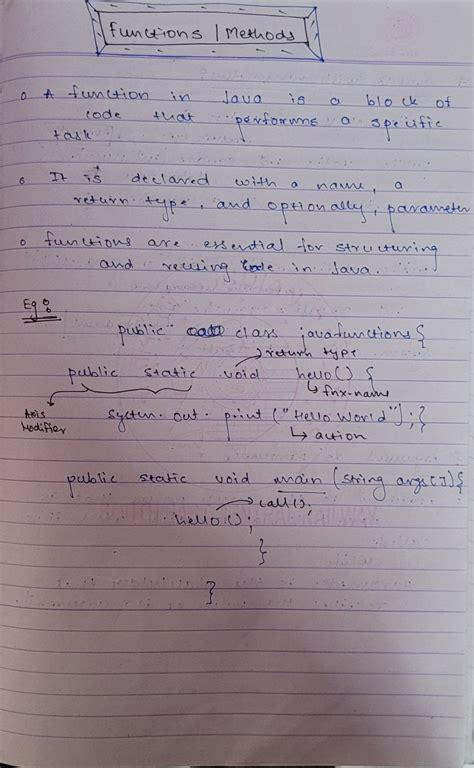 Functions | Methods
o A function in Java is a block of
code that performs a specific
task.
o It is declared with a name, a
return type, and optionally, parameter
o functions are essential for structuring
and reusing code in Java.
Eg:
public class javafunctions {
→ return type
public static void hello() {
↳ fnx-name
Axis
Modifier
system.out.print ("Hello World"); }
↳ action
public static void main (string args[]) {
→ call();
hello.();
}
}